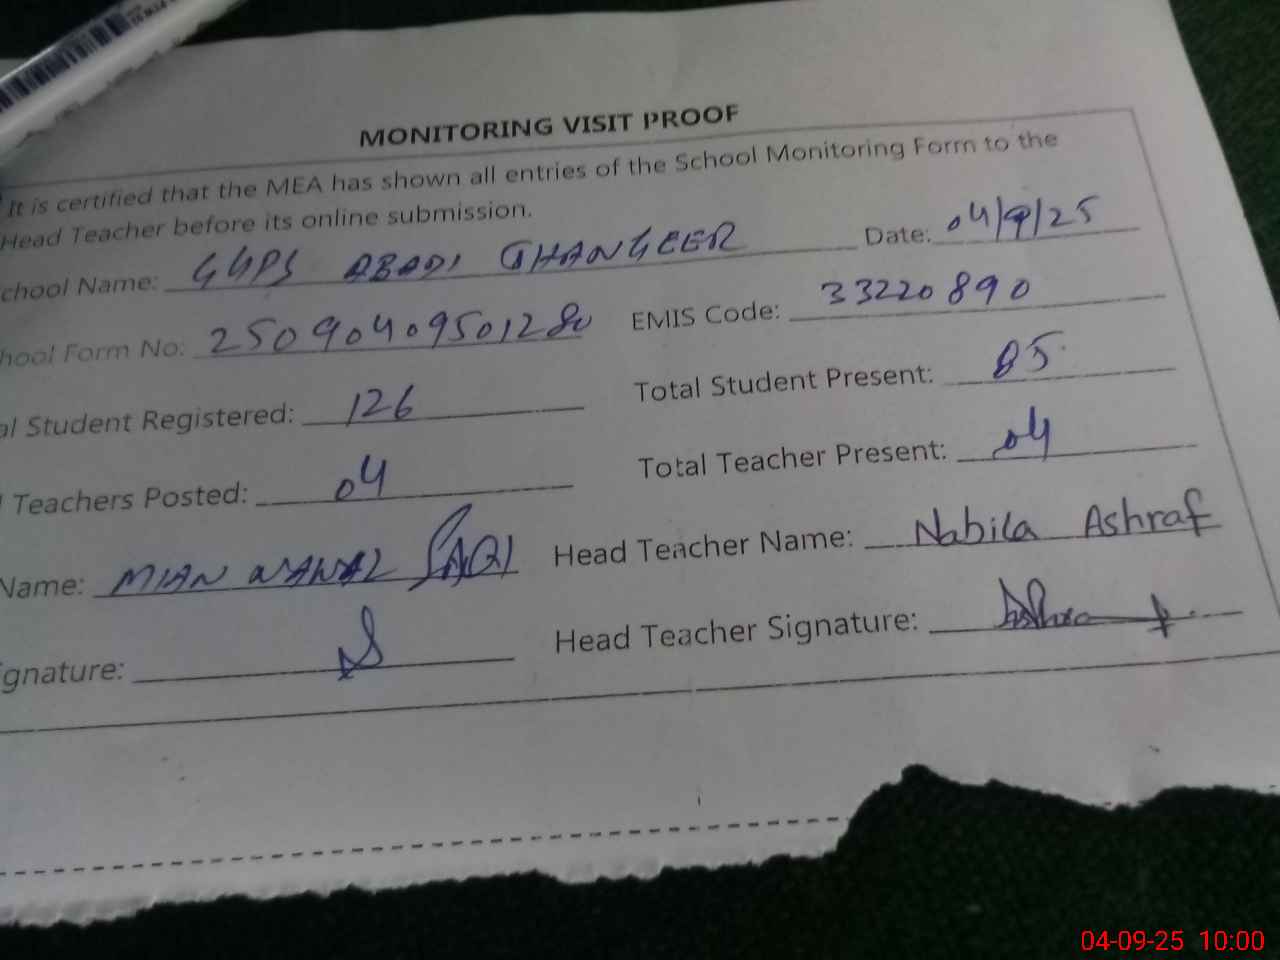 MONITORING VISIT PROOF
It is certified that the MEA has shown all entries of the School Monitoring Form to the
Head Teacher before its online submission.
chool Name: GGPS ABADI JHANGEER Date: 04/9/25
hool Form No: 25090409501280 EMIS Code: 33220890
al Student Registered: 126 Total Student Present: 85
Teachers Posted: 04 Total Teacher Present: 04
Name: MIAN Head Teacher Name: Nabila Ashraf
gnature: Head Teacher Signature:
04-09-25 10:00